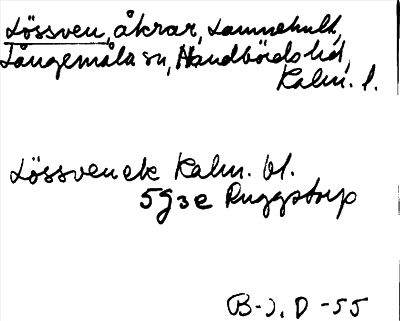 Lössven, åkrar, Lammehult,
Långemåla sn, Handbörds hd,
Kalm. l.
Lössven ek Kalm. bl.
5g3e Ruggstorp
B-J. D -55